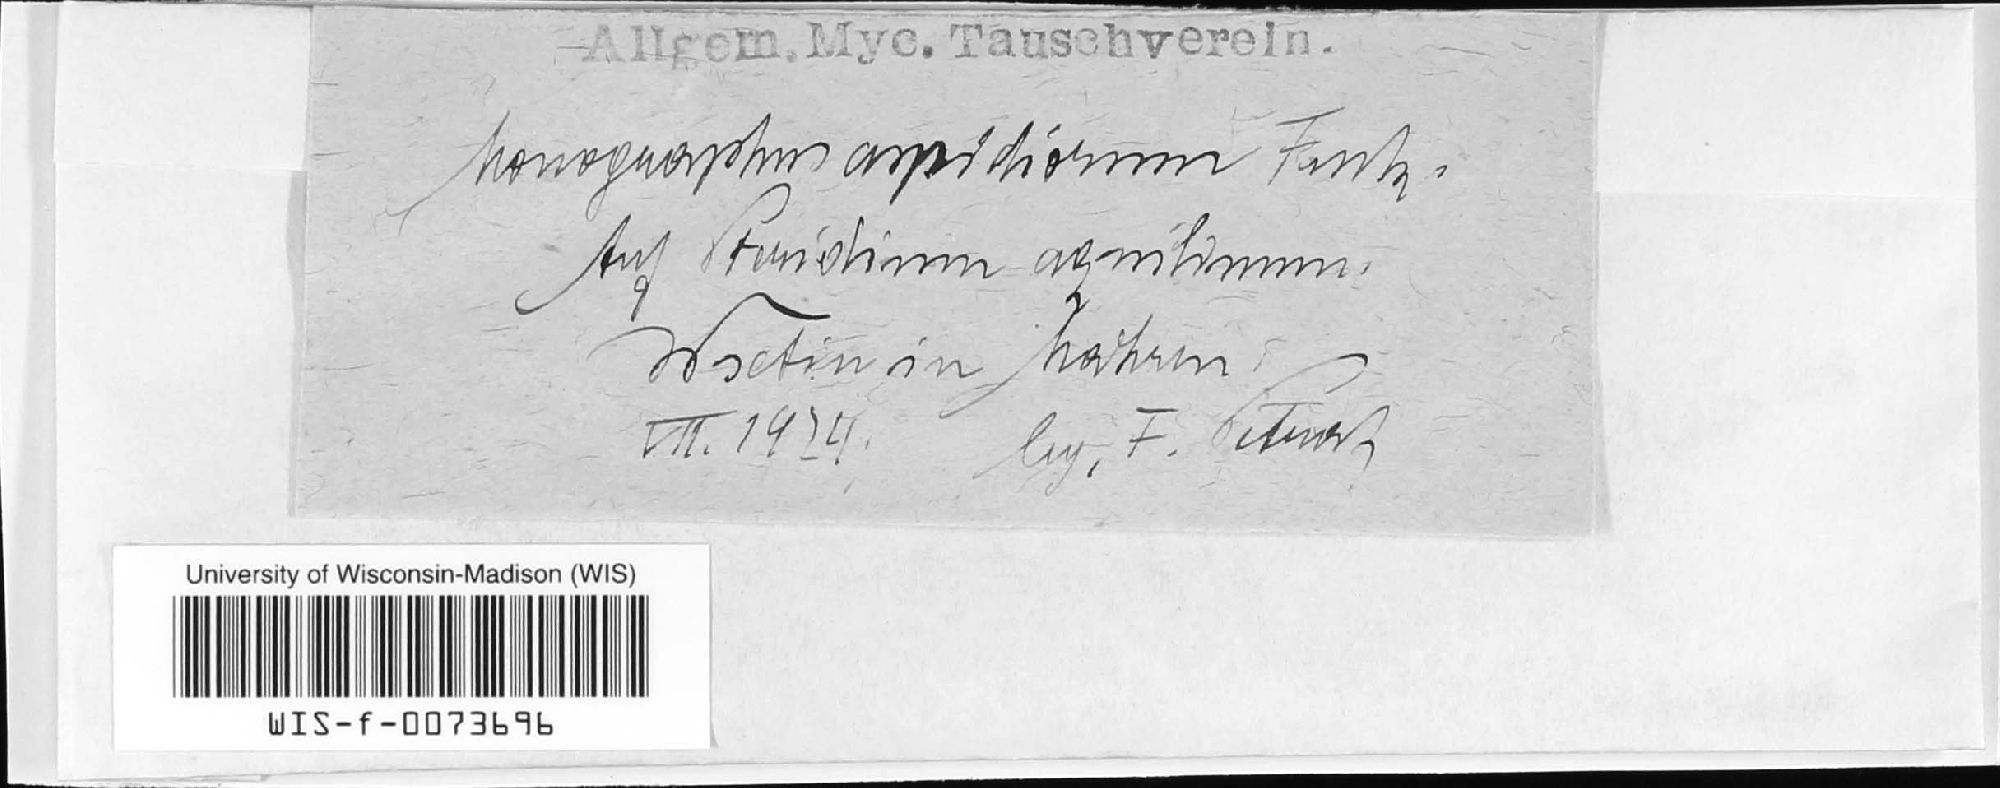 Allgem. Myc. Tauschverein.
Monographus aspidiorum Fuck.
Auf Pteridium aquilinum.
Wsetin in Mähren.
VII. 1924. leg. F. Petrak
University of Wisconsin-Madison (WIS)
WIS-f-0073696